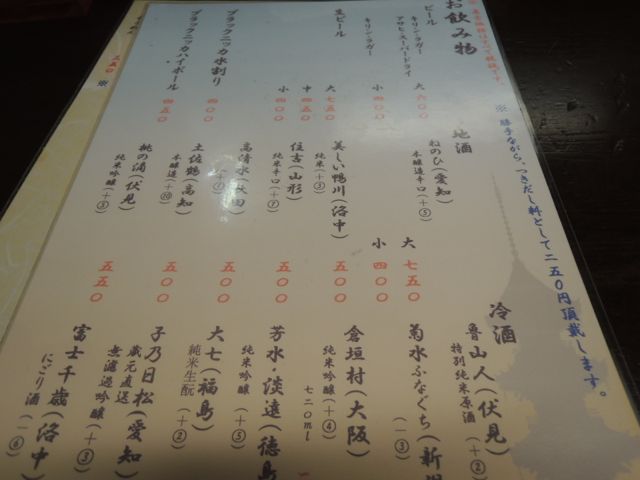 お飲み物
ビール
キリン・ラガー
アサヒ・スーパードライ
大 六〇〇
キリン・ラガー
小 四〇〇
生ビール
大 七五〇
中 四五〇
小 四〇〇
ブラックニッカ水割り
四〇〇
ブラックニッカ・ハイボール
四五〇
※ 勝手ながら、つきだし料として二五〇円頂戴します。
地酒
ねのひ(愛知)
本醸造辛口(+⑤)
大 七五〇
小 四〇〇
美しい鴨川(洛中)
純米(+③)
五〇〇
住吉(山形)
純米辛口(+⑦)
五〇〇
高清水(秋田)
五〇〇
土佐鶴(高知)
本醸造(+⑩)
五〇〇
桃の滴(伏見)
純米吟醸(+③)
五五〇
冷酒
魯山人(伏見)
特別純米原酒
(+②)
菊水ふなぐち(新潟
(−③)
倉垣村(大阪)
純米吟醸(+④)
七二〇ml
芳水・淡遠(徳島
純米吟醸(+⑤)
大七(福島)
純米生酛(+②)
子乃日松(愛知)
蔵元直送
無濾過吟醸(+③)
富士千歳(洛中
にごり酒(−⑥)
三五〇 ※